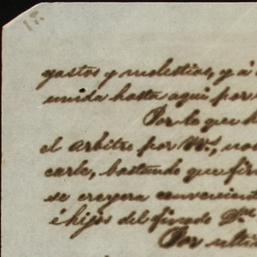 gastos y molestias, y á
unida hasta aqui por
Por lo que h
el arbitro por W., no
carle, bastando que fir
se creyera conveniente
é hijos del finado Dn.
Por ulti